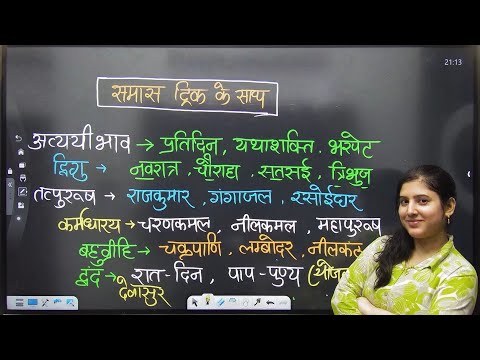 21:13
समास ट्रिक के साथ
अव्ययीभाव → प्रतिदिन, यथाशक्ति, भरपेट
द्विगु → नवरात्र, चौराहा, सतसई, त्रिभुज
तत्पुरूष → राजकुमार, गंगाजल, रसोईघर
कर्मधारय → चरणकमल, नीलकमल, महापुरूष
बहुव्रीहि → चक्रपाणि, लम्बोदर, नीलकंठ
द्वंद → रात-दिन, पाप-पुण्य
देवासुर